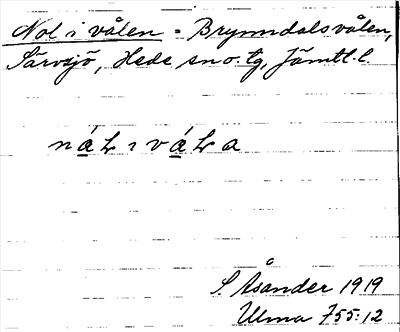 Nol i vålen = Brynndalsvålen,
Särvsjö, Hede sn o. tg, Jämtl. l.
náƚ ı váƚa
S Åsånder 1919
Ulma 755:12